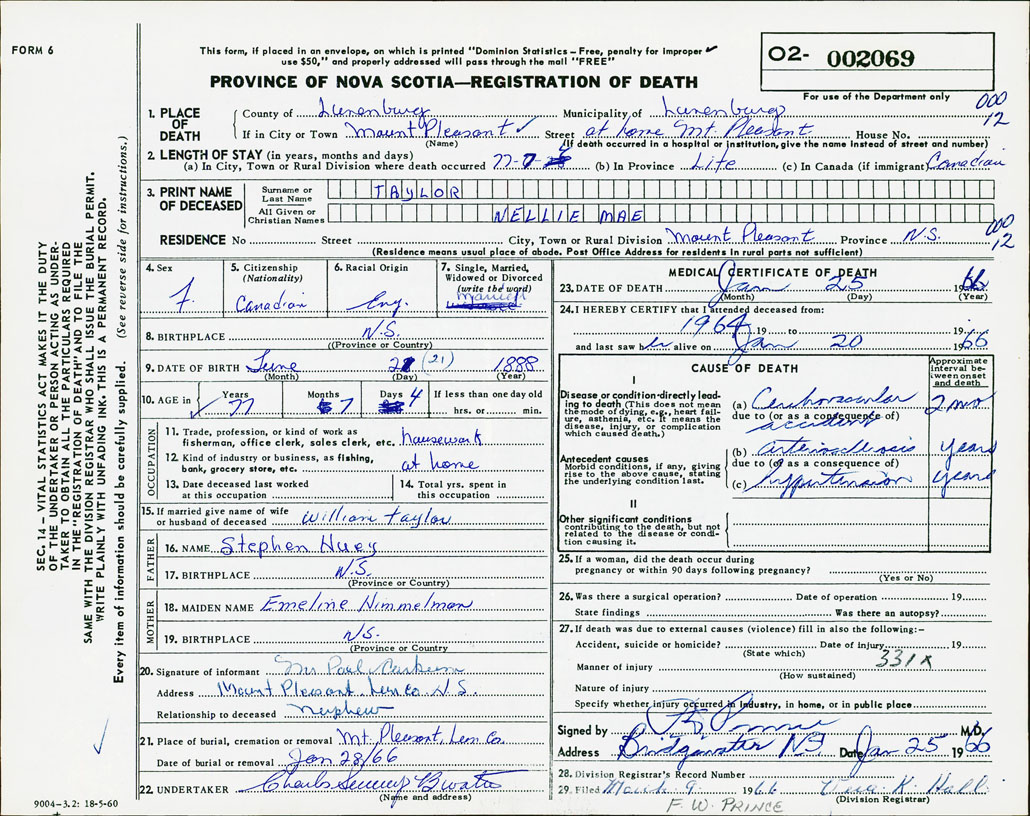 FORM 6
This form, if placed in an envelope, on which is printed "Dominion Statistics – Free, penalty for improper
use $50," and properly addressed will pass through the mail "FREE"
PROVINCE OF NOVA SCOTIA—REGISTRATION OF DEATH
02- 002069
For use of the Department only
000
12
1. PLACE OF DEATH
County of Lunenburg Municipality of Lunenburg
If in City or Town Mount Pleasant Street at home Mt. Pleasant House No.
(Name) (If death occurred in a hospital or institution, give the name instead of street and number)
2. LENGTH OF STAY (in years, months and days)
(a) In City, Town or Rural Division where death occurred 77-7- (b) In Province Life (c) In Canada (if immigrant) Canadian
3. PRINT NAME OF DECEASED
Surname or Last Name TAYLOR
All Given or Christian Names NELLIE MAE
000
12
RESIDENCE No Street City, Town or Rural Division Mount Pleasant Province N.S.
(Residence means usual place of abode. Post Office Address for residents in rural parts not sufficient)
4. Sex F.
5. Citizenship (Nationality) Canadian
6. Racial Origin Eng.
7. Single, Married, Widowed or Divorced (write the word) Married
8. BIRTHPLACE N.S.
(Province or Country)
9. DATE OF BIRTH June 21 (21) 1888
(Month) (Day) (Year)
10. AGE in Years 77 Months 7 Days 4 If less than one day old
hrs. or min.
OCCUPATION
11. Trade, profession, or kind of work as
fisherman, office clerk, sales clerk, etc. housework
12. Kind of industry or business, as fishing,
bank, grocery store, etc. at home
13. Date deceased last worked
at this occupation
14. Total yrs. spent in
this occupation
15. If married give name of wife
or husband of deceased William Taylor
FATHER
16. NAME Stephen Huey
17. BIRTHPLACE N.S.
(Province or Country)
MOTHER
18. MAIDEN NAME Emeline Himmelman
19. BIRTHPLACE N.S.
(Province or Country
20. Signature of informant Paul
Address Mount Pleasant Lun Co. N.S.
Relationship to deceased Nephew
21. Place of burial, cremation or removal Mt. Pleasant, Lun Co.
Date of burial or removal Jan 28/66
22. UNDERTAKER
(Name and address)
MEDICAL CERTIFICATE OF DEATH
23. DATE OF DEATH Jan 25 1966
(Month) (Day) (Year)
24. I HEREBY CERTIFY that I attended deceased from:
1964 19 to 19
and last saw her alive on Jan 20 1966
CAUSE OF DEATH
Approximate interval between onset and death
I
Disease or condition directly leading to death (This does not mean the mode of dying, e.g., heart failure, asthenia, etc. It means the disease, injury, or complication which caused death.)
(a) Cerebrovascular 2 mo
due to (or as a consequence of)
accident
Antecedent causes
Morbid conditions, if any, giving rise to the above cause, stating the underlying condition last.
(b) arteriosclerosis years
due to (or as a consequence of)
(c) hypertension years
II
Other significant conditions
contributing to the death, but not related to the disease or condition causing it.
25. If a woman, did the death occur during
pregnancy or within 90 days following pregnancy?
(Yes or No)
26. Was there a surgical operation? Date of operation 19
State findings Was there an autopsy?
27. If death was due to external causes (violence) fill in also the following:–
Accident, suicide or homicide? Date of injury 19
(State which) 331X
Manner of injury
(How sustained)
Nature of injury
Specify whether injury occurred in industry, in home, or in public place
Signed by M.D.
Address Bridgewater NS Date Jan 25 1966
28. Division Registrar's Record Number
29. Filed March 9 1966 K. Hall
(Division Registrar)
F. W. PRINCE
9004-3.2: 18-5-60
SEC. 14 – VITAL STATISTICS ACT MAKES IT THE DUTY
OF THE UNDERTAKER OR PERSON ACTING AS UNDER-
TAKER TO OBTAIN ALL THE PARTICULARS REQUIRED
IN THE "REGISTRATION OF DEATH" AND TO FILE THE
SAME WITH THE DIVISION REGISTRAR WHO SHALL ISSUE THE BURIAL PERMIT.
WRITE PLAINLY WITH UNFADING INK. THIS IS A PERMANENT RECORD.
Every item of information should be carefully supplied. (See reverse side for instructions.)